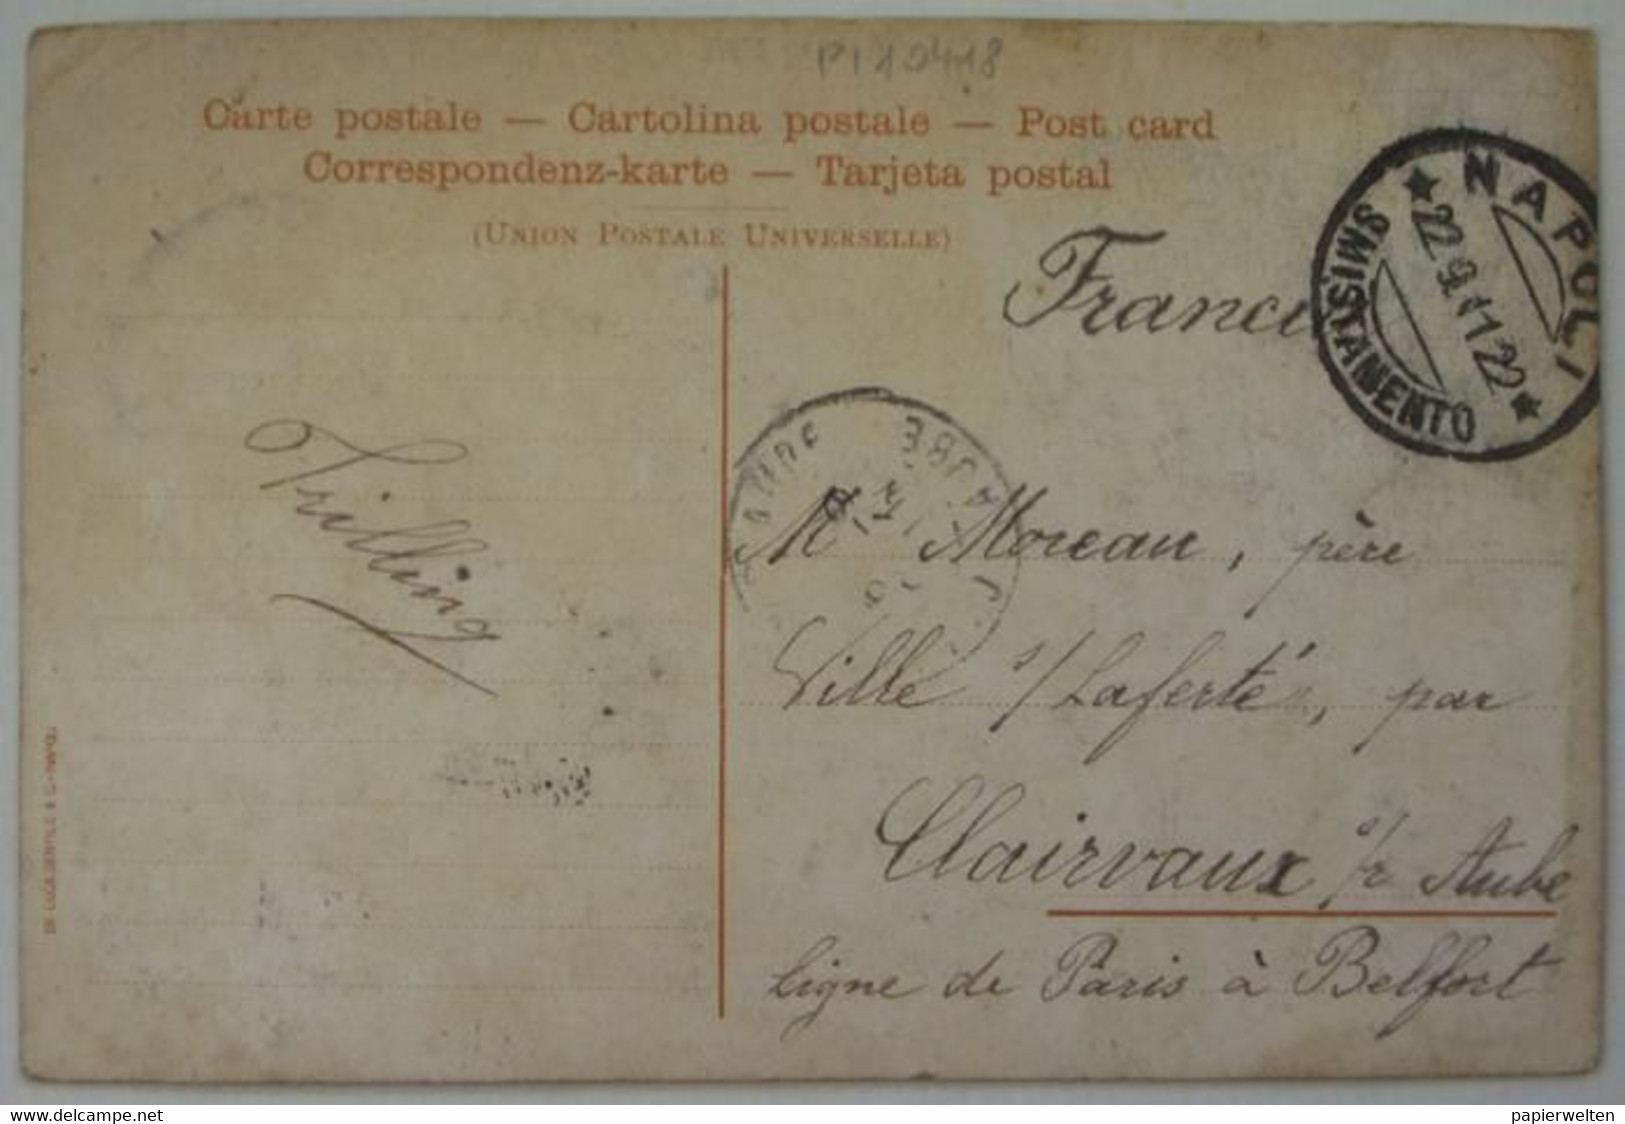 PI 10418
Carte postale — Cartolina postale — Post card
Correspondenz-karte — Tarjeta postal
(Union Postale Universelle)
NAPOLI
SMISTAMENTO
22
Trilling
Mr Moreau, père
Ville s/ Laferté, par
Clairvaux s/r Aube
Ligne de Paris à Belfort
www.delcampe.net
papierwelten